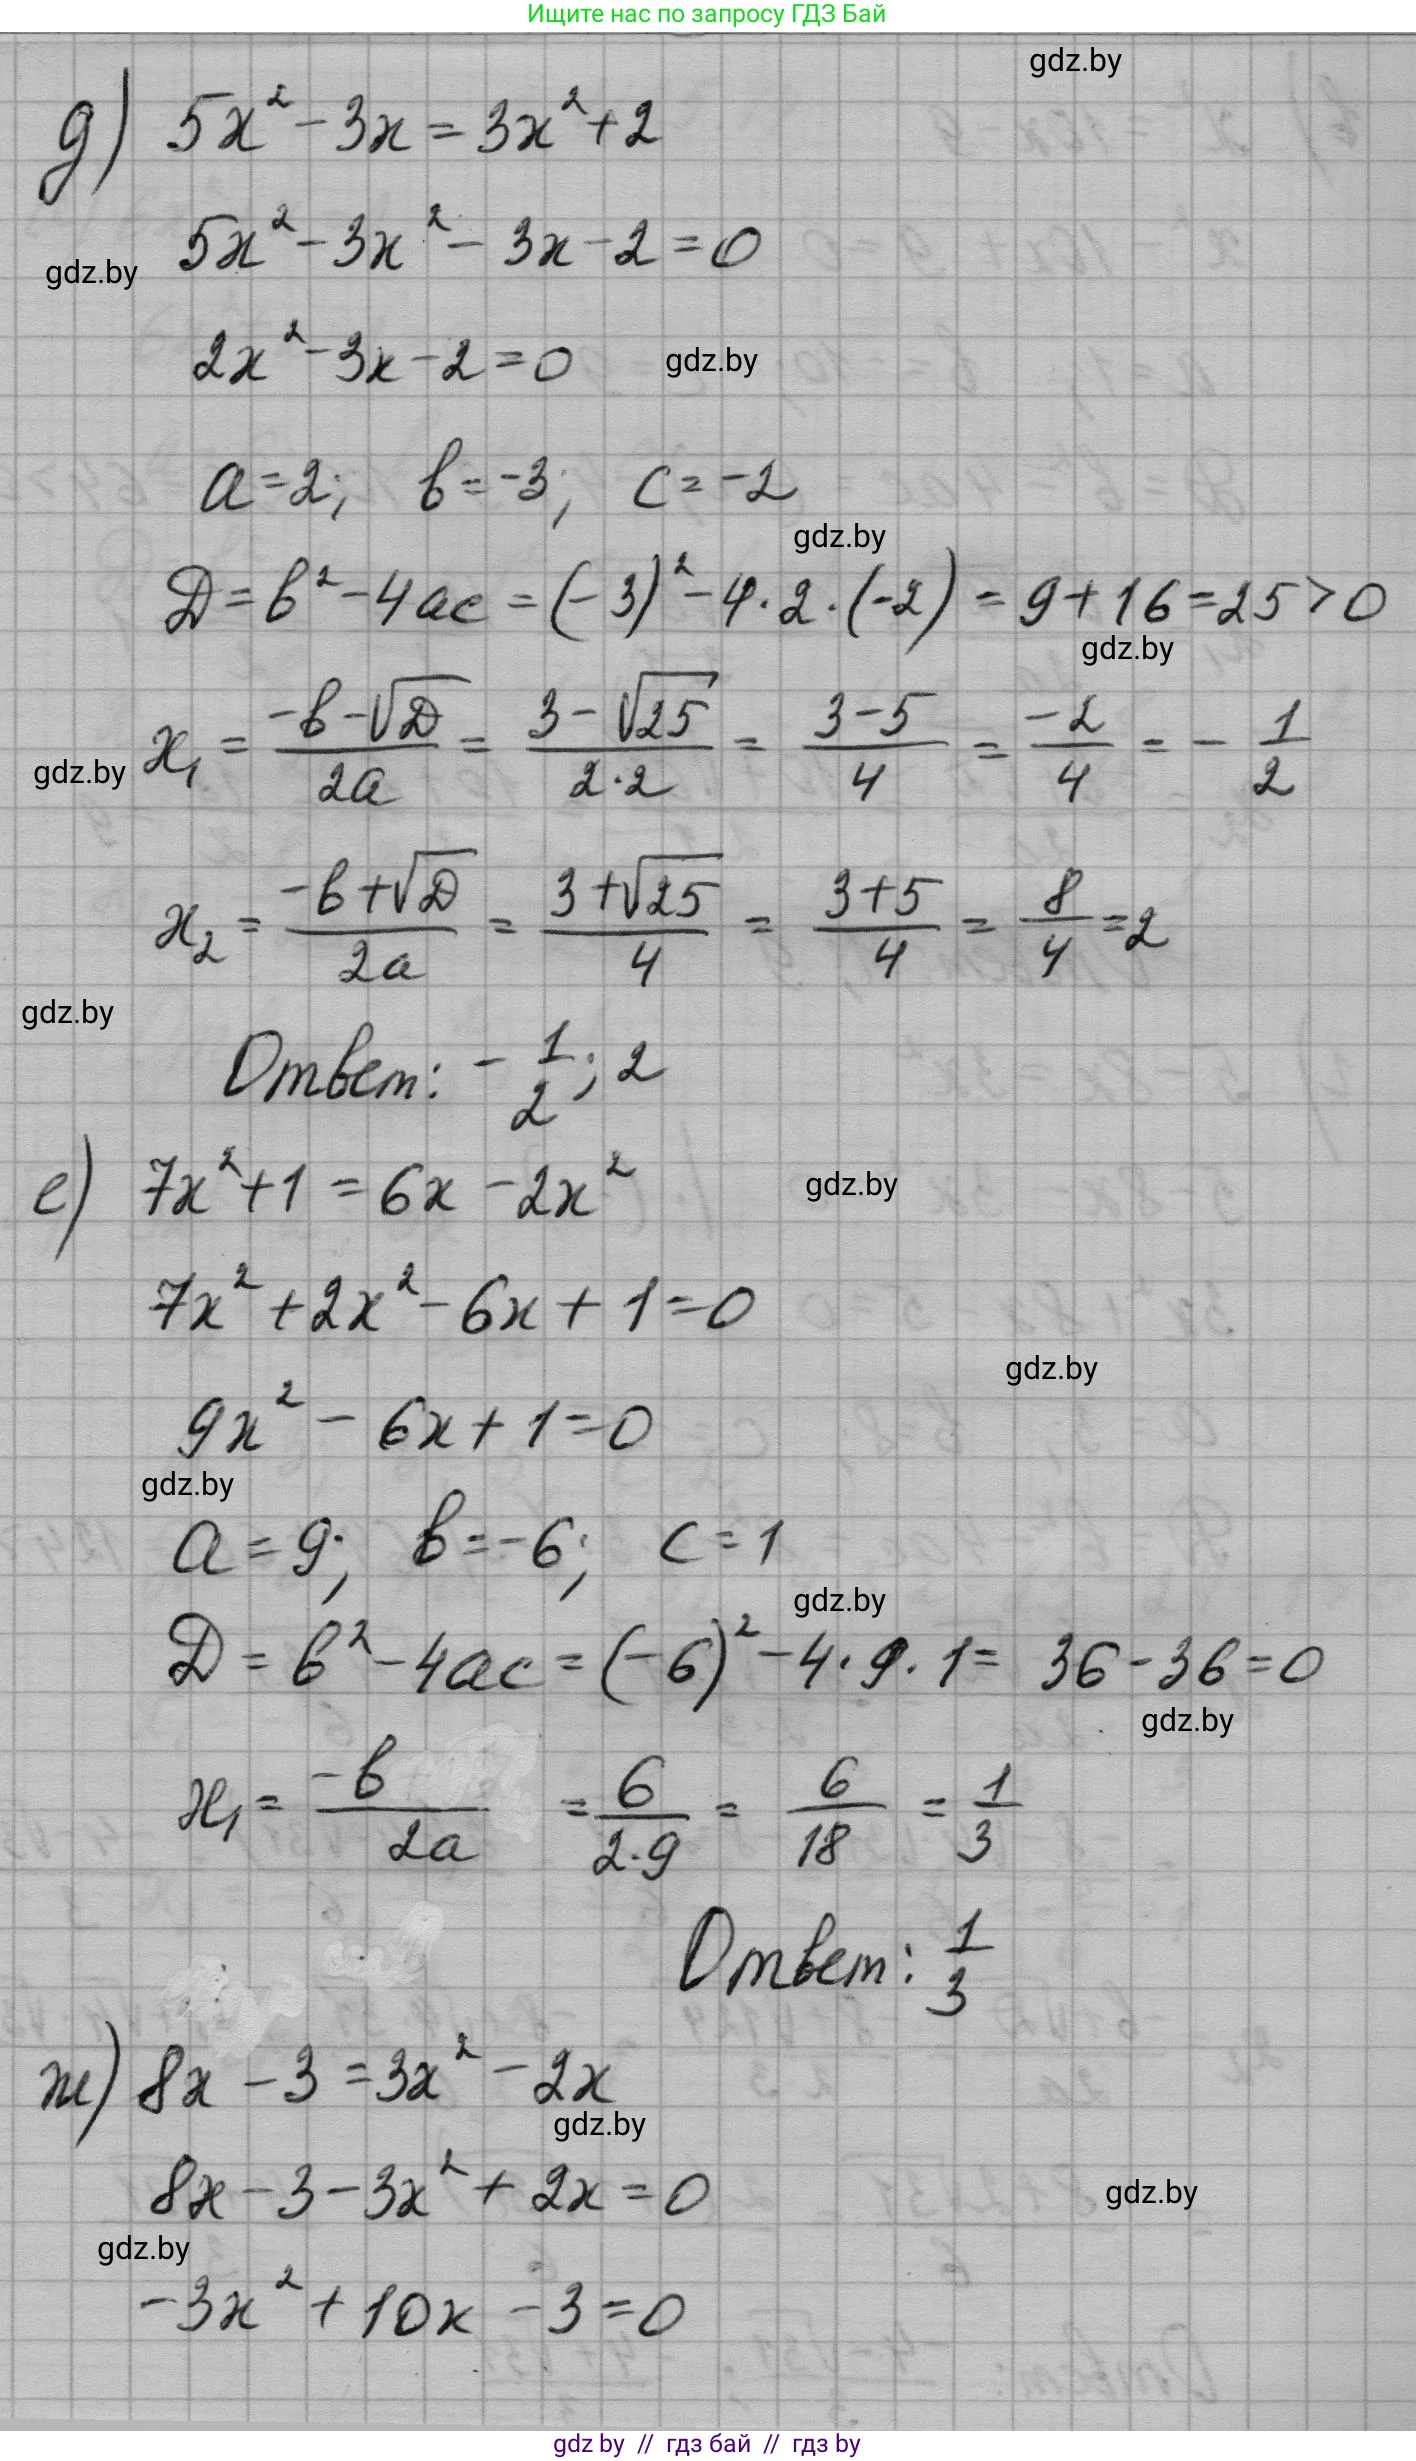 Ищите нас по запросу ГДЗ Бай
gdz.by
д) 5x² - 3x = 3x² + 2
5x² - 3x² - 3x - 2 = 0
gdz.by
2x² - 3x - 2 = 0
gdz.by
a = 2; b = -3; c = -2
gdz.by
D = b² - 4ac = (-3)² - 4·2·(-2) = 9 + 16 = 25 > 0
gdz.by
x₁ = (-b - √D)/(2a) = (3 - √25)/(2·2) = (3 - 5)/4 = (-2)/4 = - 1/2
gdz.by
x₂ = (-b + √D)/(2a) = (3 + √25)/4 = (3 + 5)/4 = 8/4 = 2
gdz.by
Ответ: - 1/2; 2
е) 7x² + 1 = 6x - 2x²
gdz.by
7x² + 2x² - 6x + 1 = 0
gdz.by
9x² - 6x + 1 = 0
gdz.by
a = 9; b = -6; c = 1
gdz.by
D = b² - 4ac = (-6)² - 4·9·1 = 36 - 36 = 0
gdz.by
x₁ = (-b)/(2a) = 6/(2·9) = 6/18 = 1/3
Ответ: 1/3
ж) 8x - 3 = 3x² - 2x
gdz.by
8x - 3 - 3x² + 2x = 0
gdz.by
gdz.by
-3x² + 10x - 3 = 0
gdz by // гдз бай // гдз by